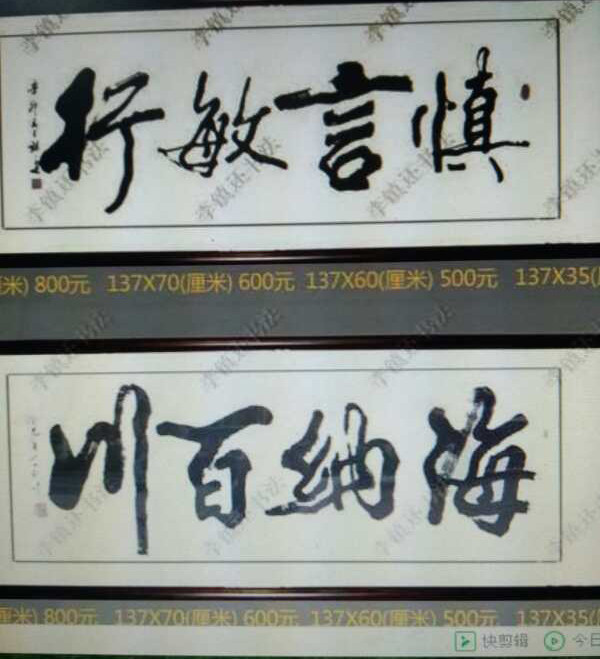 慎言敏行
李镇还书法
米) 800元 137X70(厘米) 600元 137X60(厘米) 500元 137X35(
海纳百川
李镇还书法
厘米) 800元 137X70(厘米) 600元 137X60(厘米) 500元 137X35(
快剪辑 今日